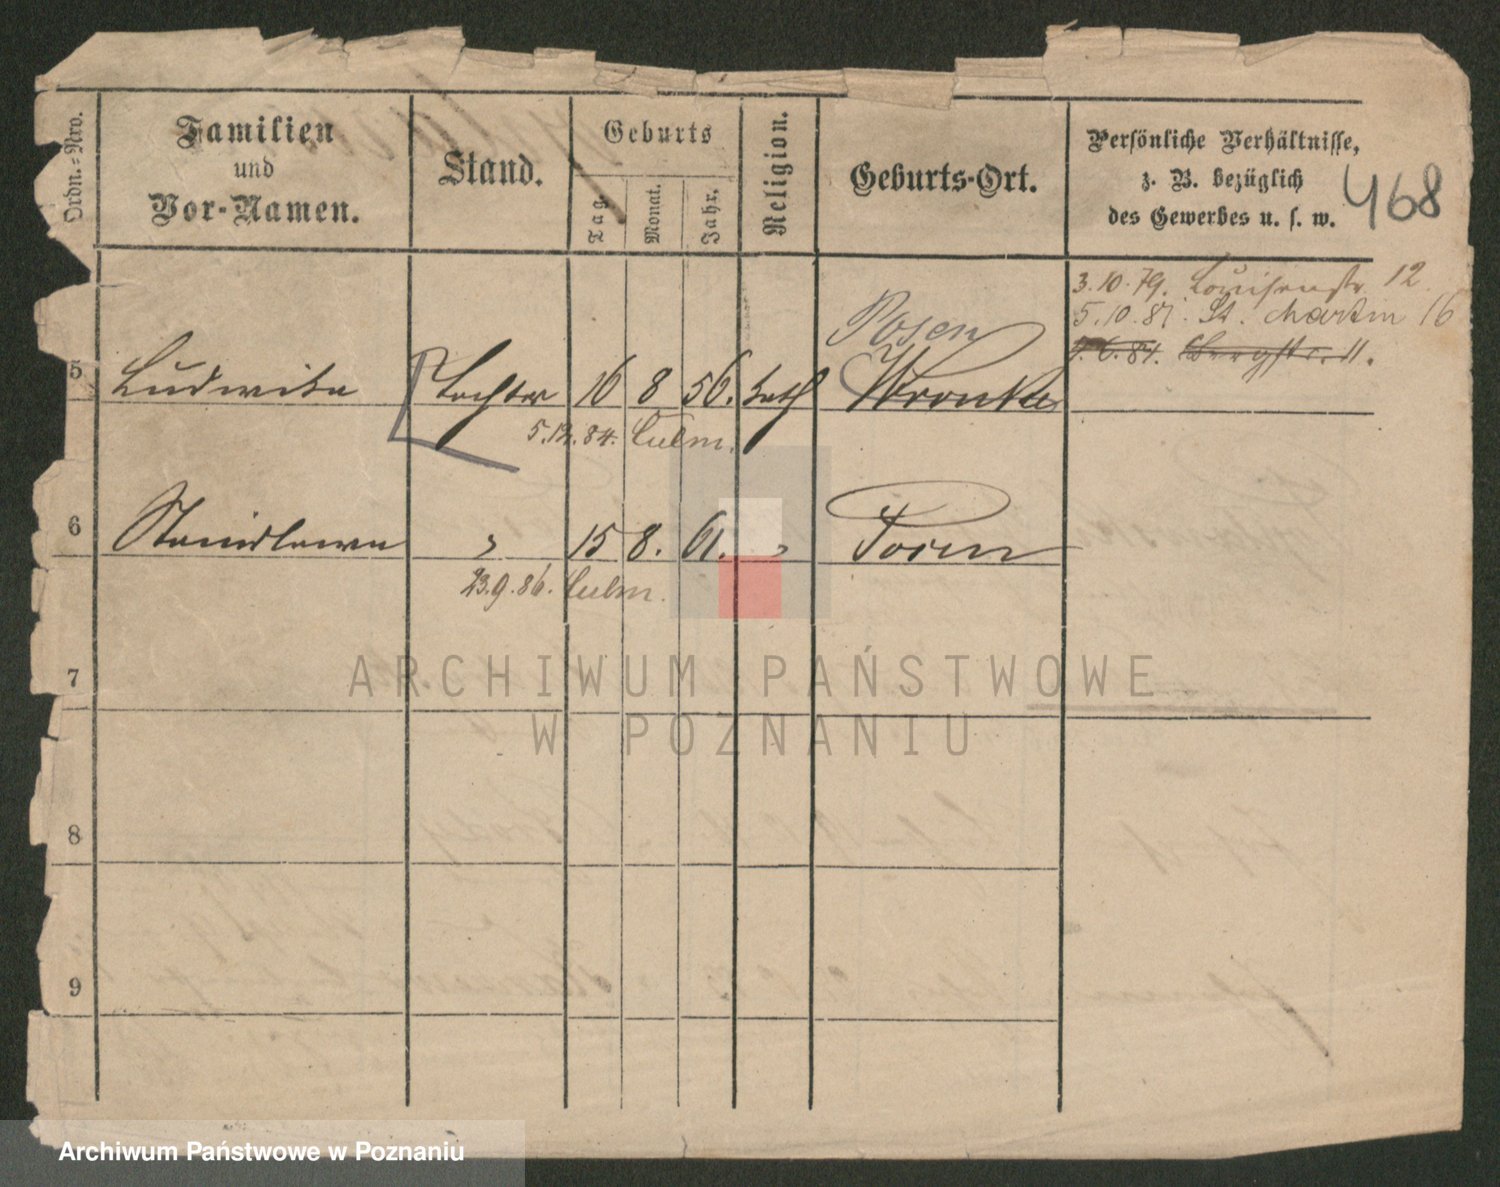 Ordn.-Nro.
Familien
und
Vor-Namen.
Stand.
Geburts
Tag.
Monat.
Jahr.
Religion.
Geburts-Ort.
Persönliche Verhältnisse,
z. B. bezüglich
des Gewerbes u. s. w.
468
3.10.79. Louisenstr. 12
5.10.81. St. Martin 16
Bergstr. 11.
Posen
5 Ludwika Tochter 16 8 56. kath Wronke
5.12.84. Culm.
6 Stanislawa " 15 8. 61. " Posen
23.9.86. Culm.
7
8
9
ARCHIWUM PAŃSTWOWE
W POZNANIU
Archiwum Państwowe w Poznaniu